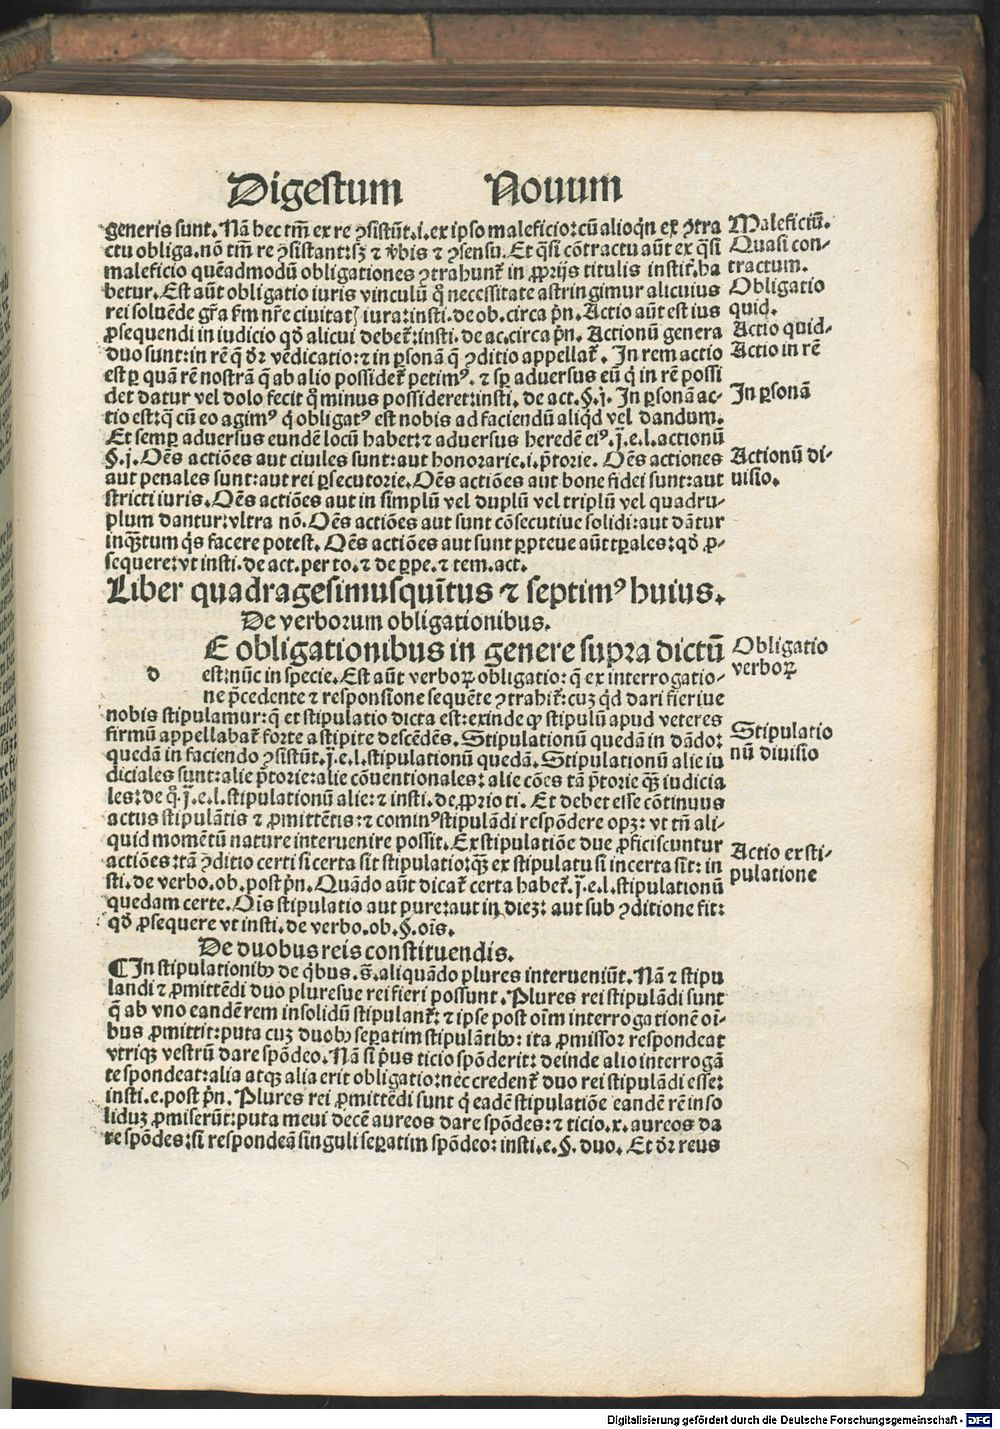 Digestum Novum
generis sunt. Nā hec tm̄ ex re ꝯsistūt .i. ex ipso maleficio: cū alioqn̄ ex ꝯtra
ctu obliga. nō tm̄ re ꝯsistant: sꝫ ⁊ v̄bis ⁊ ꝯsensu. Et q̄si cōtractu aūt ex q̄si
maleficio quēadmodū obligationes ꝯtrahunt̄ in ꝓprijs titulis instit̄. ha
betur. Est aūt obligatio iuris vinculū q̄ necessitate astringimur alicuius
rei soluēde gr̄a fm nr̄e ciuitatꝭ iura: insti. de ob. circa pn̄. Actio aūt est ius
ꝓsequendi in iudicio qd̄ alicui debet̄: insti. de ac. circa pn̄. Actionū genera
duo sunt: in rē q̄ dr̄ vēdicatio: ⁊ in ꝑsonā q̄ ꝯditio appellat̄. In rem actio
est ꝑ quā rē nostrā q̄ ab alio possidet̄ petimꝰ. ⁊ sꝑ aduersus eū q̇ in rē possi
det datur vel dolo fecit q̄ minus possideret: insti. de act. §. j. In ꝑsonā ac-
tio est: q̄ cū eo agimꝰ q̇ obligatꝰ est nobis ad faciendū aliqd̄ vel dandum.
Et semꝑ aduersus eundē locū habet: ⁊ aduersus heredē eiꝰ. j̄. e. l. actionū
§. j. Oēs actiōes aut ciuiles sunt: aut honorarie .i. p̄torie. Oēs actiones
aut penales sunt: aut rei ꝑsecutorie. Oēs actiōes aut bone fidei sunt: aut
stricti iuris. Oēs actiōes aut in simplū vel duplū vel triplū vel quadru-
plum dantur: vltra nō. Oēs actiōes aut sunt cōsecutiue solidi: aut dātur
inqꝫtum q̇s facere potest. Oēs actiōes aut sunt ꝑpteue aūt tꝑales: qd̄ ꝓ-
sequere: vt insti. de act. per to. ⁊ de ꝑpe. ⁊ tem. act.
Liber quadragesimusquītus ⁊ septimꝰ huius.
De verborum obligationibus.
d E obligationibus in genere supra dictū
est: nūc in specie. Est aūt verboꝝ obligatio: q̄ ex interrogatio-
ne p̄cedente ⁊ responsione sequēte ꝯtrahit̄: cuꝫ qd̄ dari fieriue
nobis stipulamur: q̄ et stipulatio dicta est: exinde ꝙ stipulū apud veteres
firmū appellabat̄ forte a stipite descēdēs. Stipulationū quedā in dādo:
quedā in faciendo ꝯsistūt. j̄. e. l. stipulationū quedā. Stipulationū alie iu
diciales sunt: alie p̄torie: alie cōuentionales: alie cōes tā p̄torie qꝫ iudicia
les: de q̇. j̄. e. l. stipulationū alie: ⁊ insti. de ꝓprio ti. Et debet esse cōtinuus
actus stipulātis ⁊ ꝓmittētis: ⁊ cominꝰ stipulādi respōdere opꝫ: vt tn̄ ali-
quid momētū nature interuenire possit. Ex stipulatiōe due ꝓficiscuntur
actiōes: tā ꝯditio certi si certa sit stipulatio: qꝫ ex stipulatu si incerta sit: in
sti. de verbo. ob. post pn̄. Quādo aūt dicat̄ certa habet̄. j̄. e. l. stipulationū
quedam certe. Oīs stipulatio aut pure: aut in dieꝫ: aut sub ꝯditione fit:
qd̄ ꝓsequere vt insti. de verbo. ob. §. oīs.
De duobus reis constituendis.
¶ In stipulationibꝰ de q̇bus .s̄. aliquādo plures interueniūt. Nā ⁊ stipu
landi ⁊ ꝓmittēdi duo pluresue rei fieri possunt. Plures rei stipulādi sunt
q̄ ab vno eandē rem insolidū stipulant̄: ⁊ ipse post oīm interrogationē oī-
bus ꝓmittit: puta cuꝫ duobꝰ seꝑatim stipulātibꝰ: ita ꝓmissor respondeat
vtriqꝫ vestrū dare spōdeo. Nā si p̄us ticio spōderit: deinde alio interrogā
te spondeat: alia atqꝫ alia erit obligatio: nec credent̄ duo rei stipulādi esse:
insti. e. post pn̄. Plures rei ꝓmittēdi sunt q̇ eadē stipulatiōe eandē rē in so
liduꝫ ꝓmiserūt: puta meui decē aureos dare spōdes: ⁊ ticio .x. aureos da
re spōdes: si respondeā singuli seꝑatim spōdeo: insti. e. §. duo. Et dr̄ reus
Maleficiū.
Quasi con-
tractum.
Obligatio
quid.
Actio quid.
Actio in rē
In ꝑsonā
Actionū di-
uisio.
Obligatio
verboꝝ
Stipulatio
nū diuisio
Actio ex sti-
pulatione
Digitalisierung gefördert durch die Deutsche Forschungsgemeinschaft - DFG